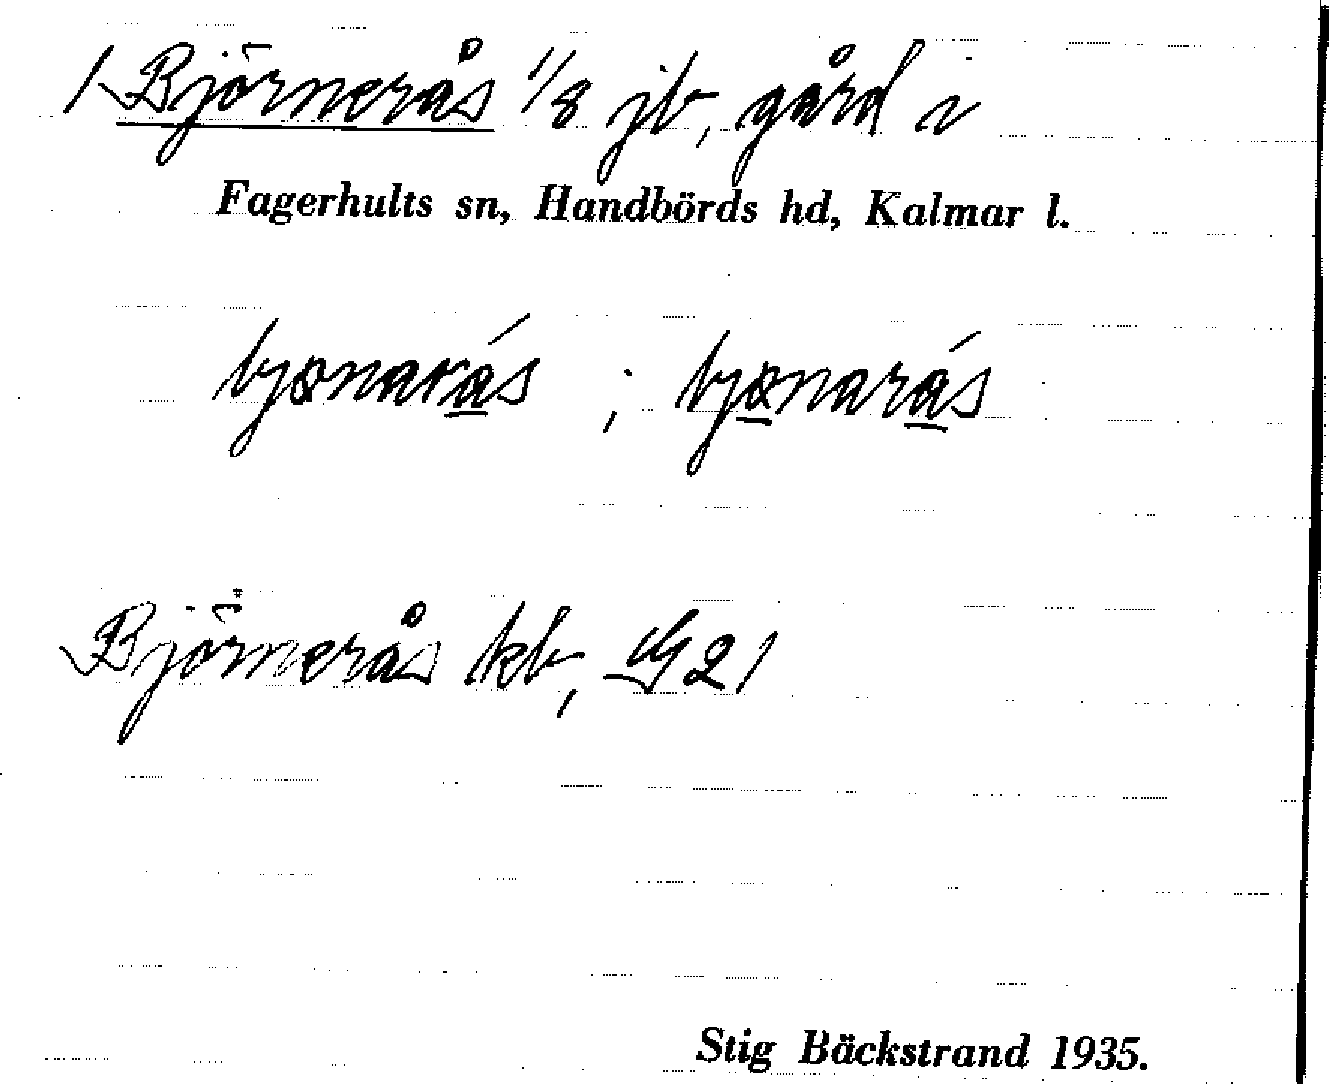 1 Björnerås 1/8 jb, gård i
Fagerhults sn, Handbörds hd, Kalmar l.
Björnerås kb, G21
Stig Bäckstrand 1935.